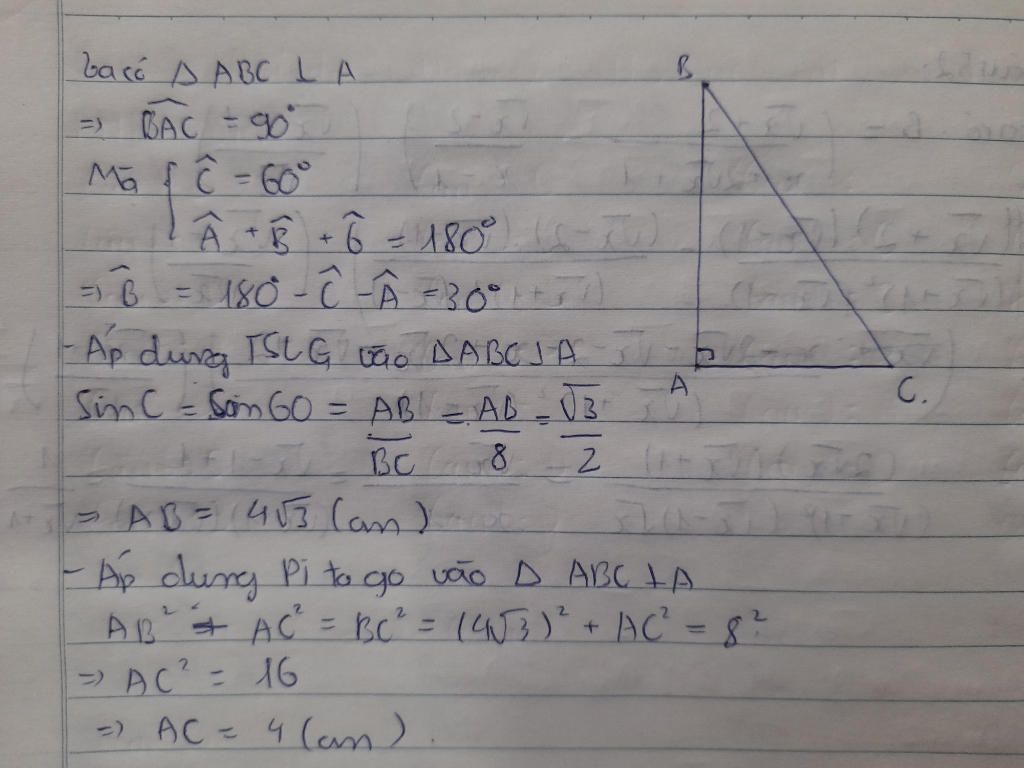 Ta có Δ ABC ⊥ A
B
=> \widehat{BAC} = 90°
Mà { Ĉ = 60°
Â + B̂ + Ĉ = 180°
=> B̂ = 180° - Ĉ - Â = 30°
- Áp dụng TSLG vào ΔABC⊥A
A
C.
Sin C = Sin 60 = AB/BC = AB/8 = √3/2
=> AB = 4√3 (cm)
- Áp dụng Pi ta go vào Δ ABC⊥A
AB² + AC² = BC² = (4√3)² + AC² = 8²
=> AC² = 16
=> AC = 4 (cm).